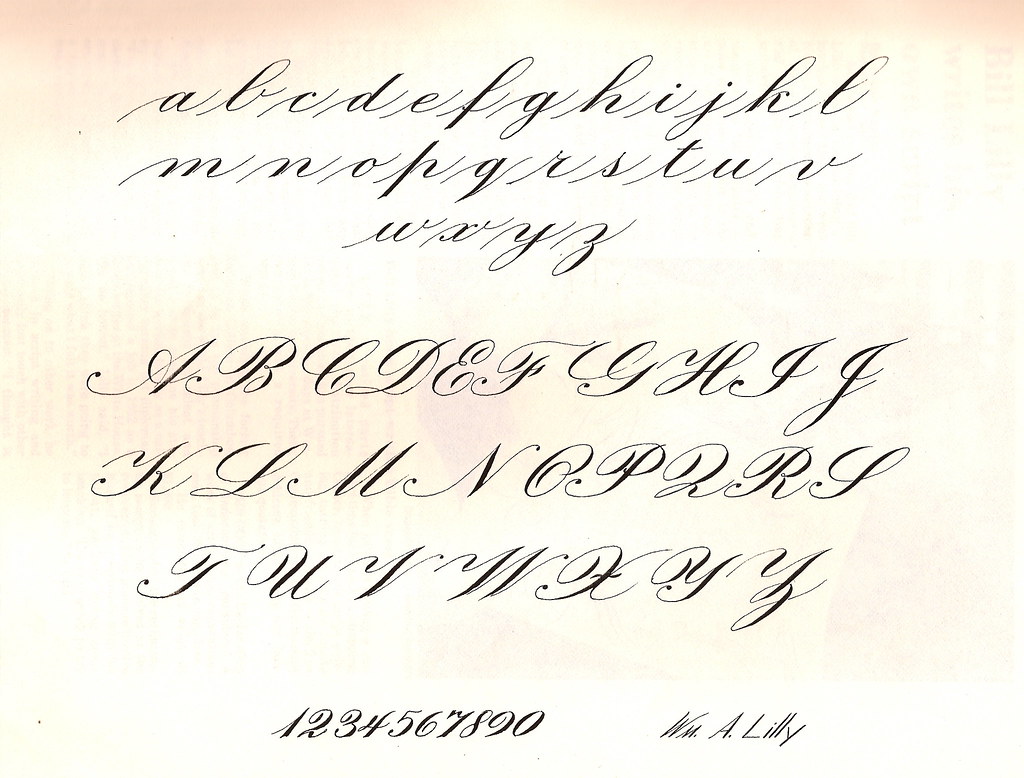 a b c d e f g h i j k l
m n o p q r s t u v
w x y z
A B C D E F G H I J
K L M N O P Q R S
T U V W X Y Z
1234567890 Wm. A. Lilly